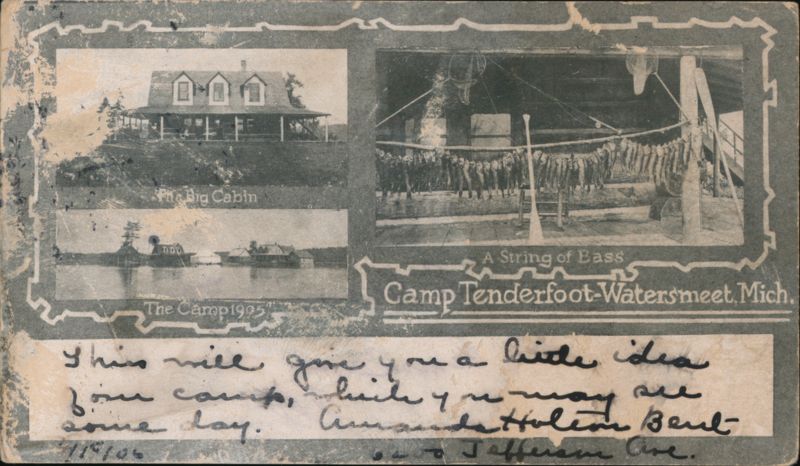 The Big Cabin
The Camp 1905
A String of Bass
Camp Tenderfoot-Watersmeet, Mich.
This will give you a little idea
of our camp, which you may see
some day. Amanda Holton Bent
Jefferson Ave.